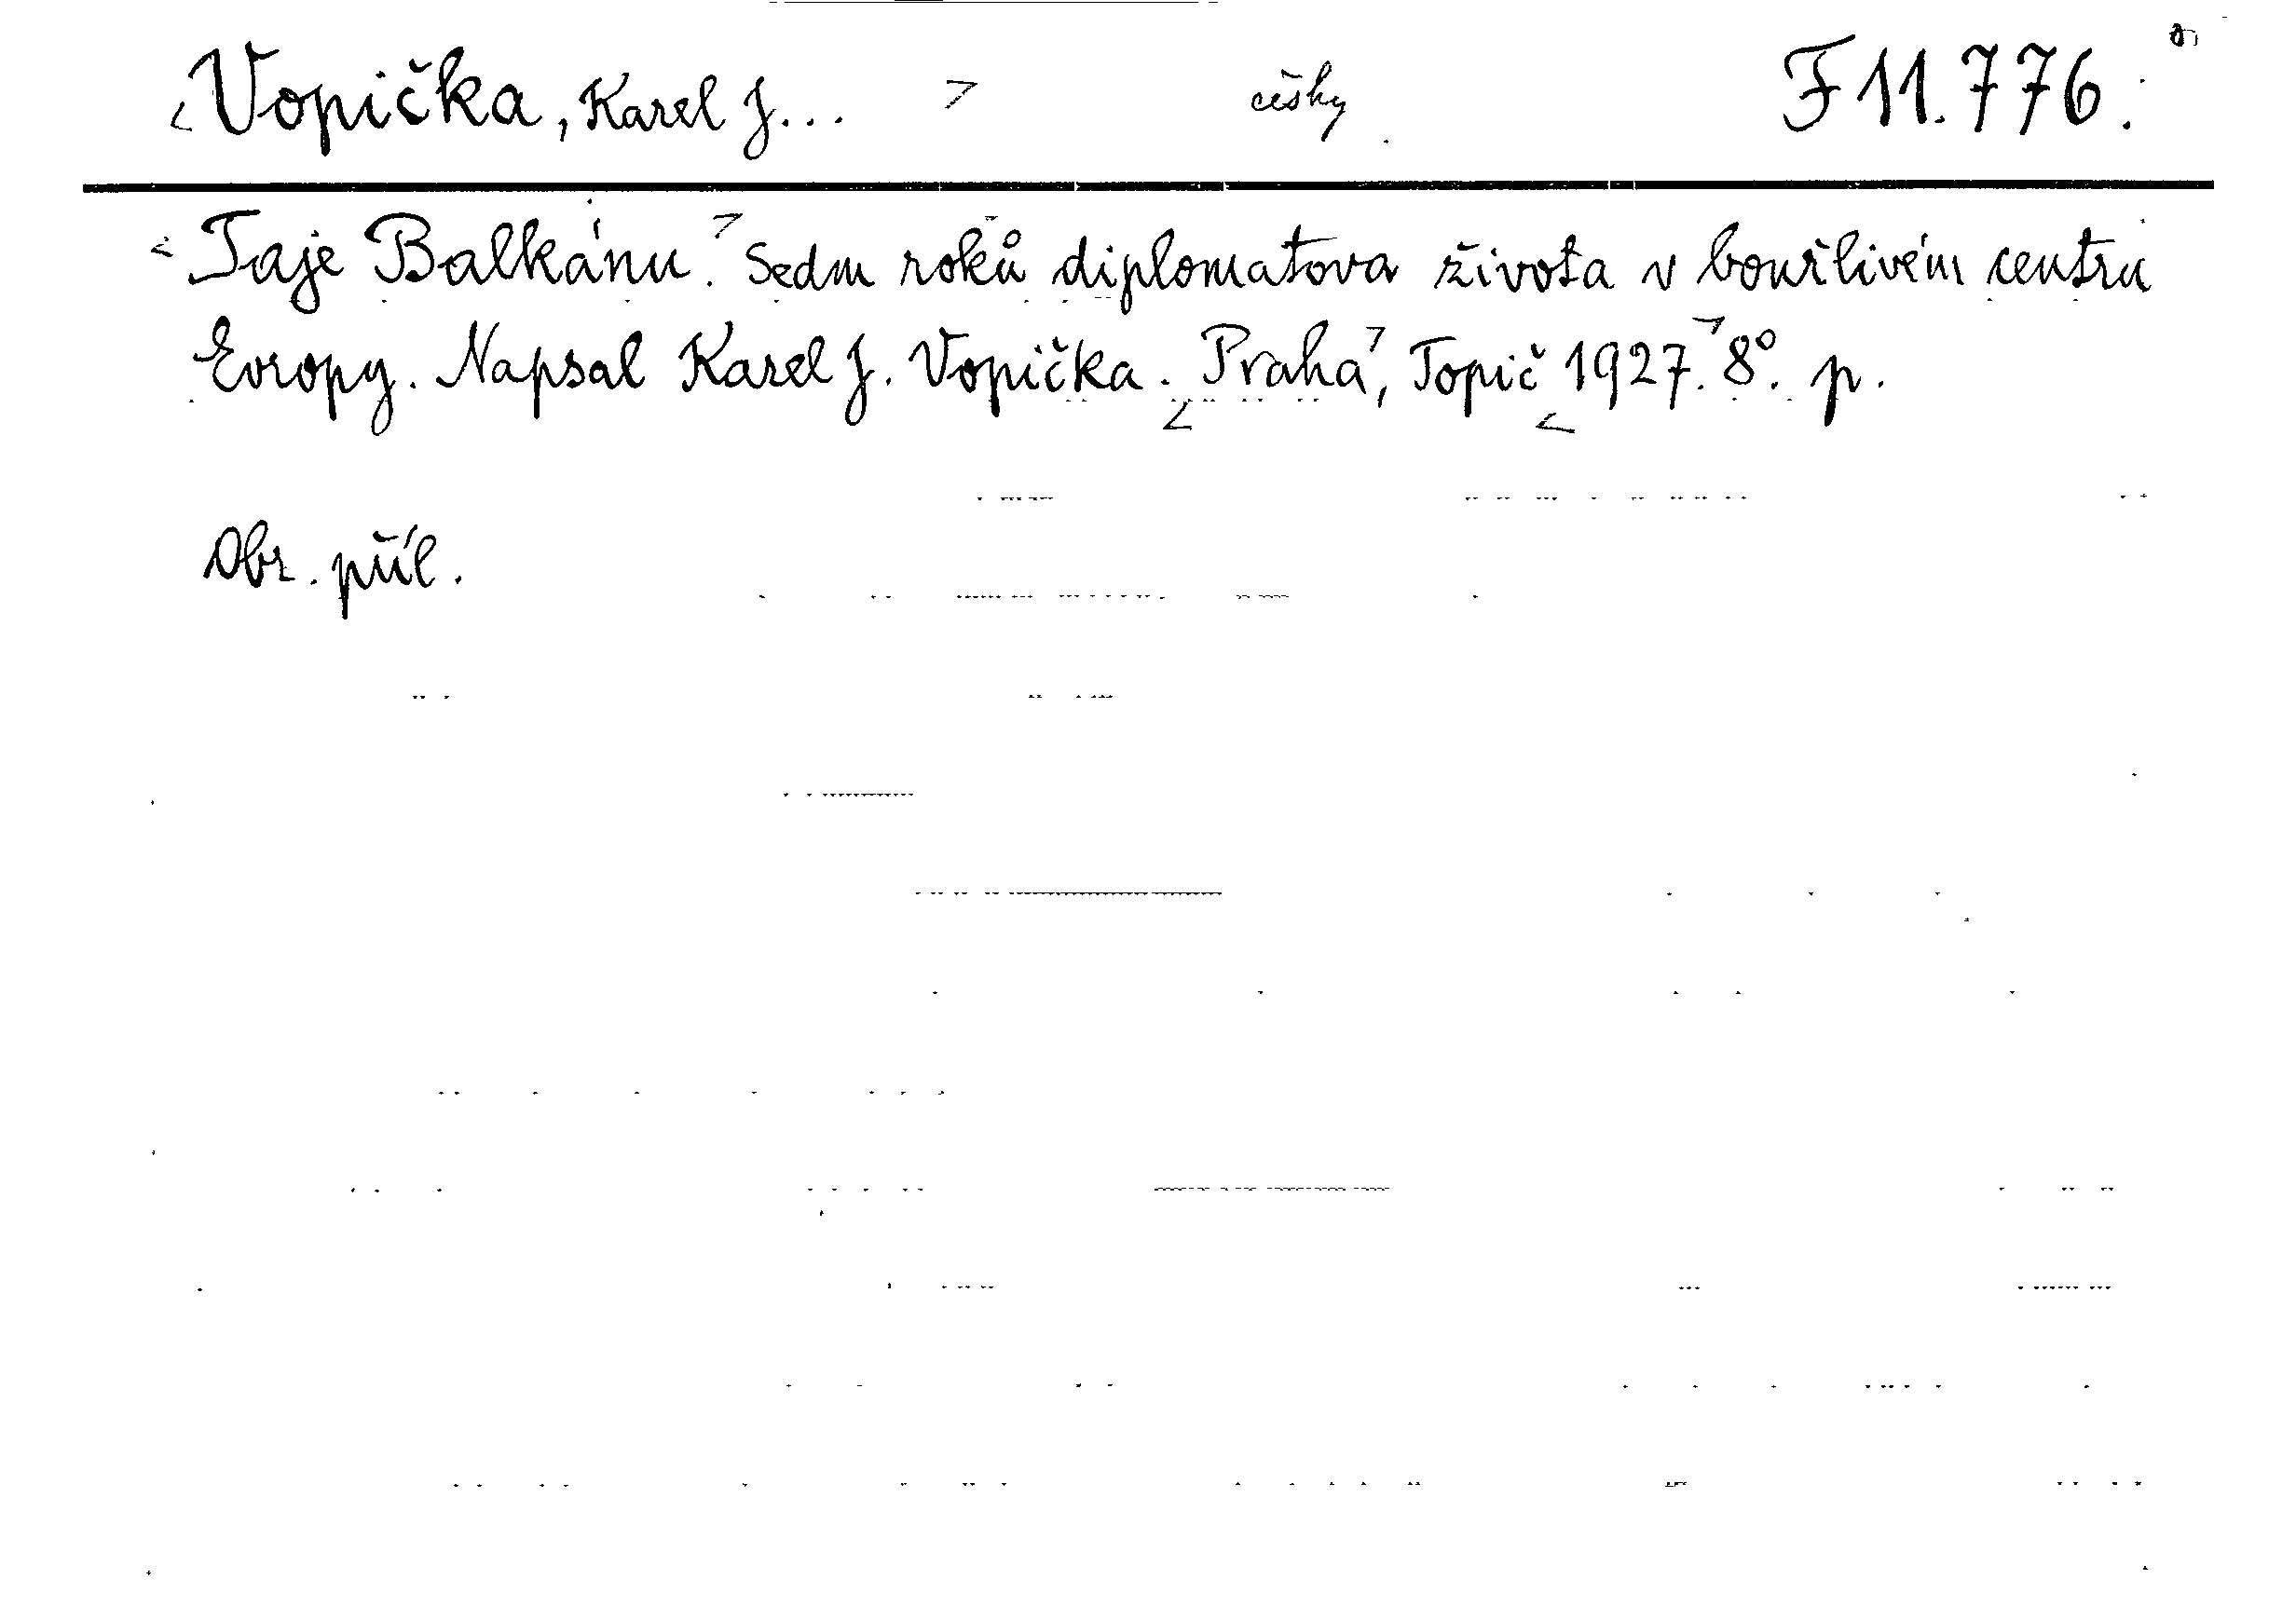 Vopička, Karel J... česky F 11.776.
Taje Balkánu. Sedm roků diplomatova života v bouřlivém centru
Evropy. Napsal Karel J. Vopička. Praha, Topič 1927. 8°. p.
Obr. příl.